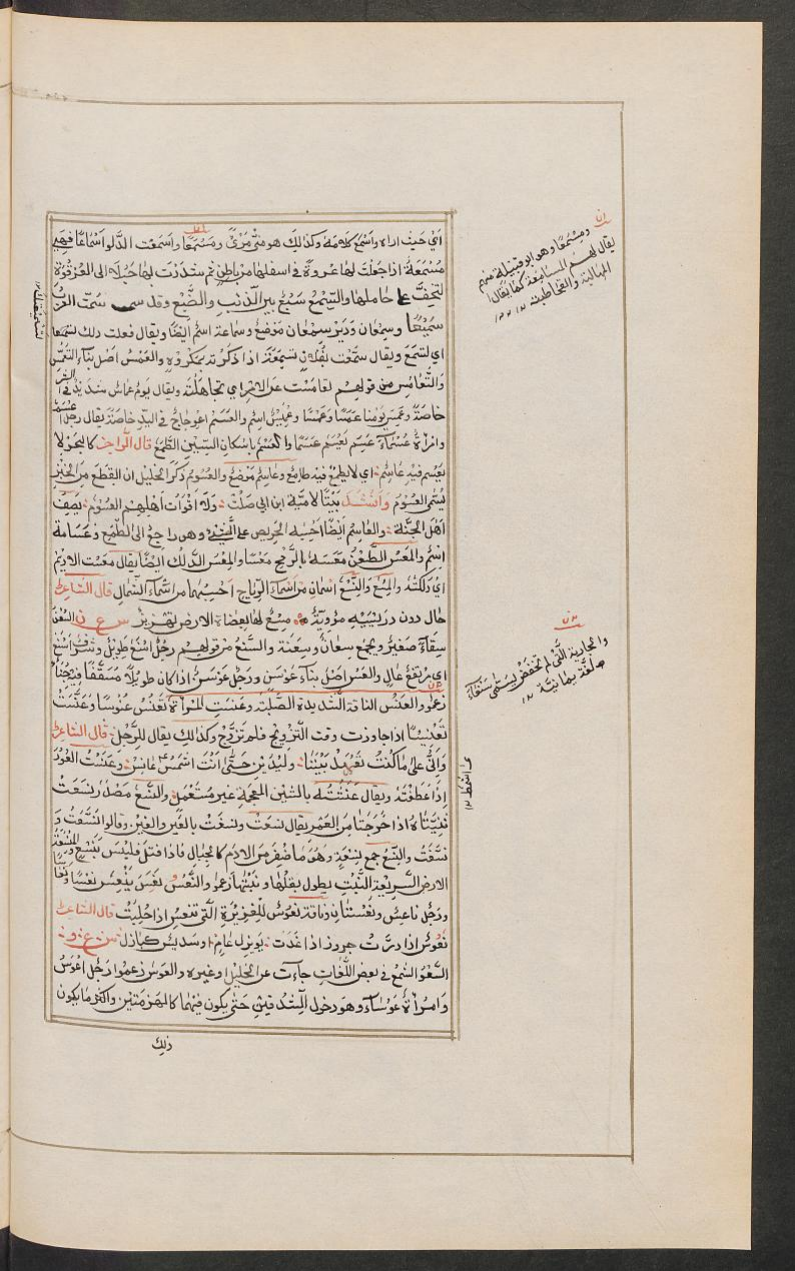 اي حيث اراه واسمع كلامه وكذلك هو مني مرئ ومسمعا واسمعت الدلو اسماعا فهي
مسمعة اذا جعلت لها عروة في اسفلها من باطن ثم شددت بها حبلا الى العرقوة
لتخف على حاملها والسمع سبع بين الذئب والضبع وقد سمت العرب
سميعا وسمعان ودير سمعان موضع وسماعة اسم ايضا ويقال فعلت ذلك تسمعا
اي لتسمع ويقال سمعت بفلان تسمعة اذا ذكرته بمكروه والعمس اصل بناء التعمس
والتعامس من قولهم تعامست عن الامر اي تجاهلته ويقال يوم عماس شديد في الشر
خاصة وعمس يومنا عمسا وعمسا وعميس اسم والعسم اعوجاج في اليد خاصة يقال رجل اعسم
وامراة عسماء عسم يعسم عسما والعسم باسكان السين الطمع قال الراجز كالبحر لا
يعسم فيه عاسم اي لا يطمع فيه طامع وعاسم موضع والعسوم ذكر الخليل ان القطع من الخبز
يسمى العسوم وانشد بيتا لامية ابن ابي صلت ولا اقوات اهلهم العسوم يصف
اهل الجنة والعاسم ايضا احسبه الحريص على الشئ وهو راجع الى الطمع وعسامة
اسم والمعس الطعن معسه بالرمح معسا والمعس الدلك ايضا يقال معست الاديم
اي دلكته والمسع والنسع اسمان من اسماء الرياح احسبهما من اسماء الشمال قال الشاعر
حال دون دريسيه مؤوية مسع لها بعضاه الارض تهزيز س ع ن السعن
سقاء صغير ويجمع سعان وسعنة والسنع من قولهم رجل اسنع طويل وشرف اسنع
اي مرتفع عال والعس اصل بناء عوسن ورجل عوسن اذا كان طويلا مسقفا فيه جنأ
زعموا والعنس الناقة الشديدة الصلبة وعنست المراة تعنس عنوسا وعنست
تعنيسا اذا جاوزت وقت التزويج فلم تزوج وكذلك يقال للرجل قال الشاعر
واني على ما كنت تعهد بيننا وليدين حتى انت اشمس عانس وعنست العود
اذا عطفته ويقال عنشته بالشين المعجمة غير مستعمل والنسع مصدر نسعت
ثنيتاه اذا خرجتا من العمر يقال نسعت ونسغت بالعين والغين وقالوا انتسعت و
نسعت والنسع جمع نسعة وهو ما ضفر من الادم كالحبال فاذا فتل فليس بنسع والمنسعة
الارض السريعة النبت يطول بقلها ونبتها زعموا والنعس نعس ينعس نعسا ونعاسا
ورجل ناعس ونعسان وناقة نعوس للغزيرة التي تنعس اذا حلبت قال الشاعر
نعوس اذا درت جروز اذا غدت بويزل عام او سديس كبازل س ع و
السعو الشمع في بعض اللغات جاءت عن الخليل او غيره والعوس زعموا رجل اعوس
وامراة عوساء وهو دخول الشدقين حتى يكون فيهما كالهزمتين واكثر ما يكون
ذلك
ومسمعا وهو ابو قبيلة منهم
يقال لهم المسامعة كما يقال
المهالبة والقحاطبة
والجارية التي لم تخفض يسمى سنعاء
لغة يمانية